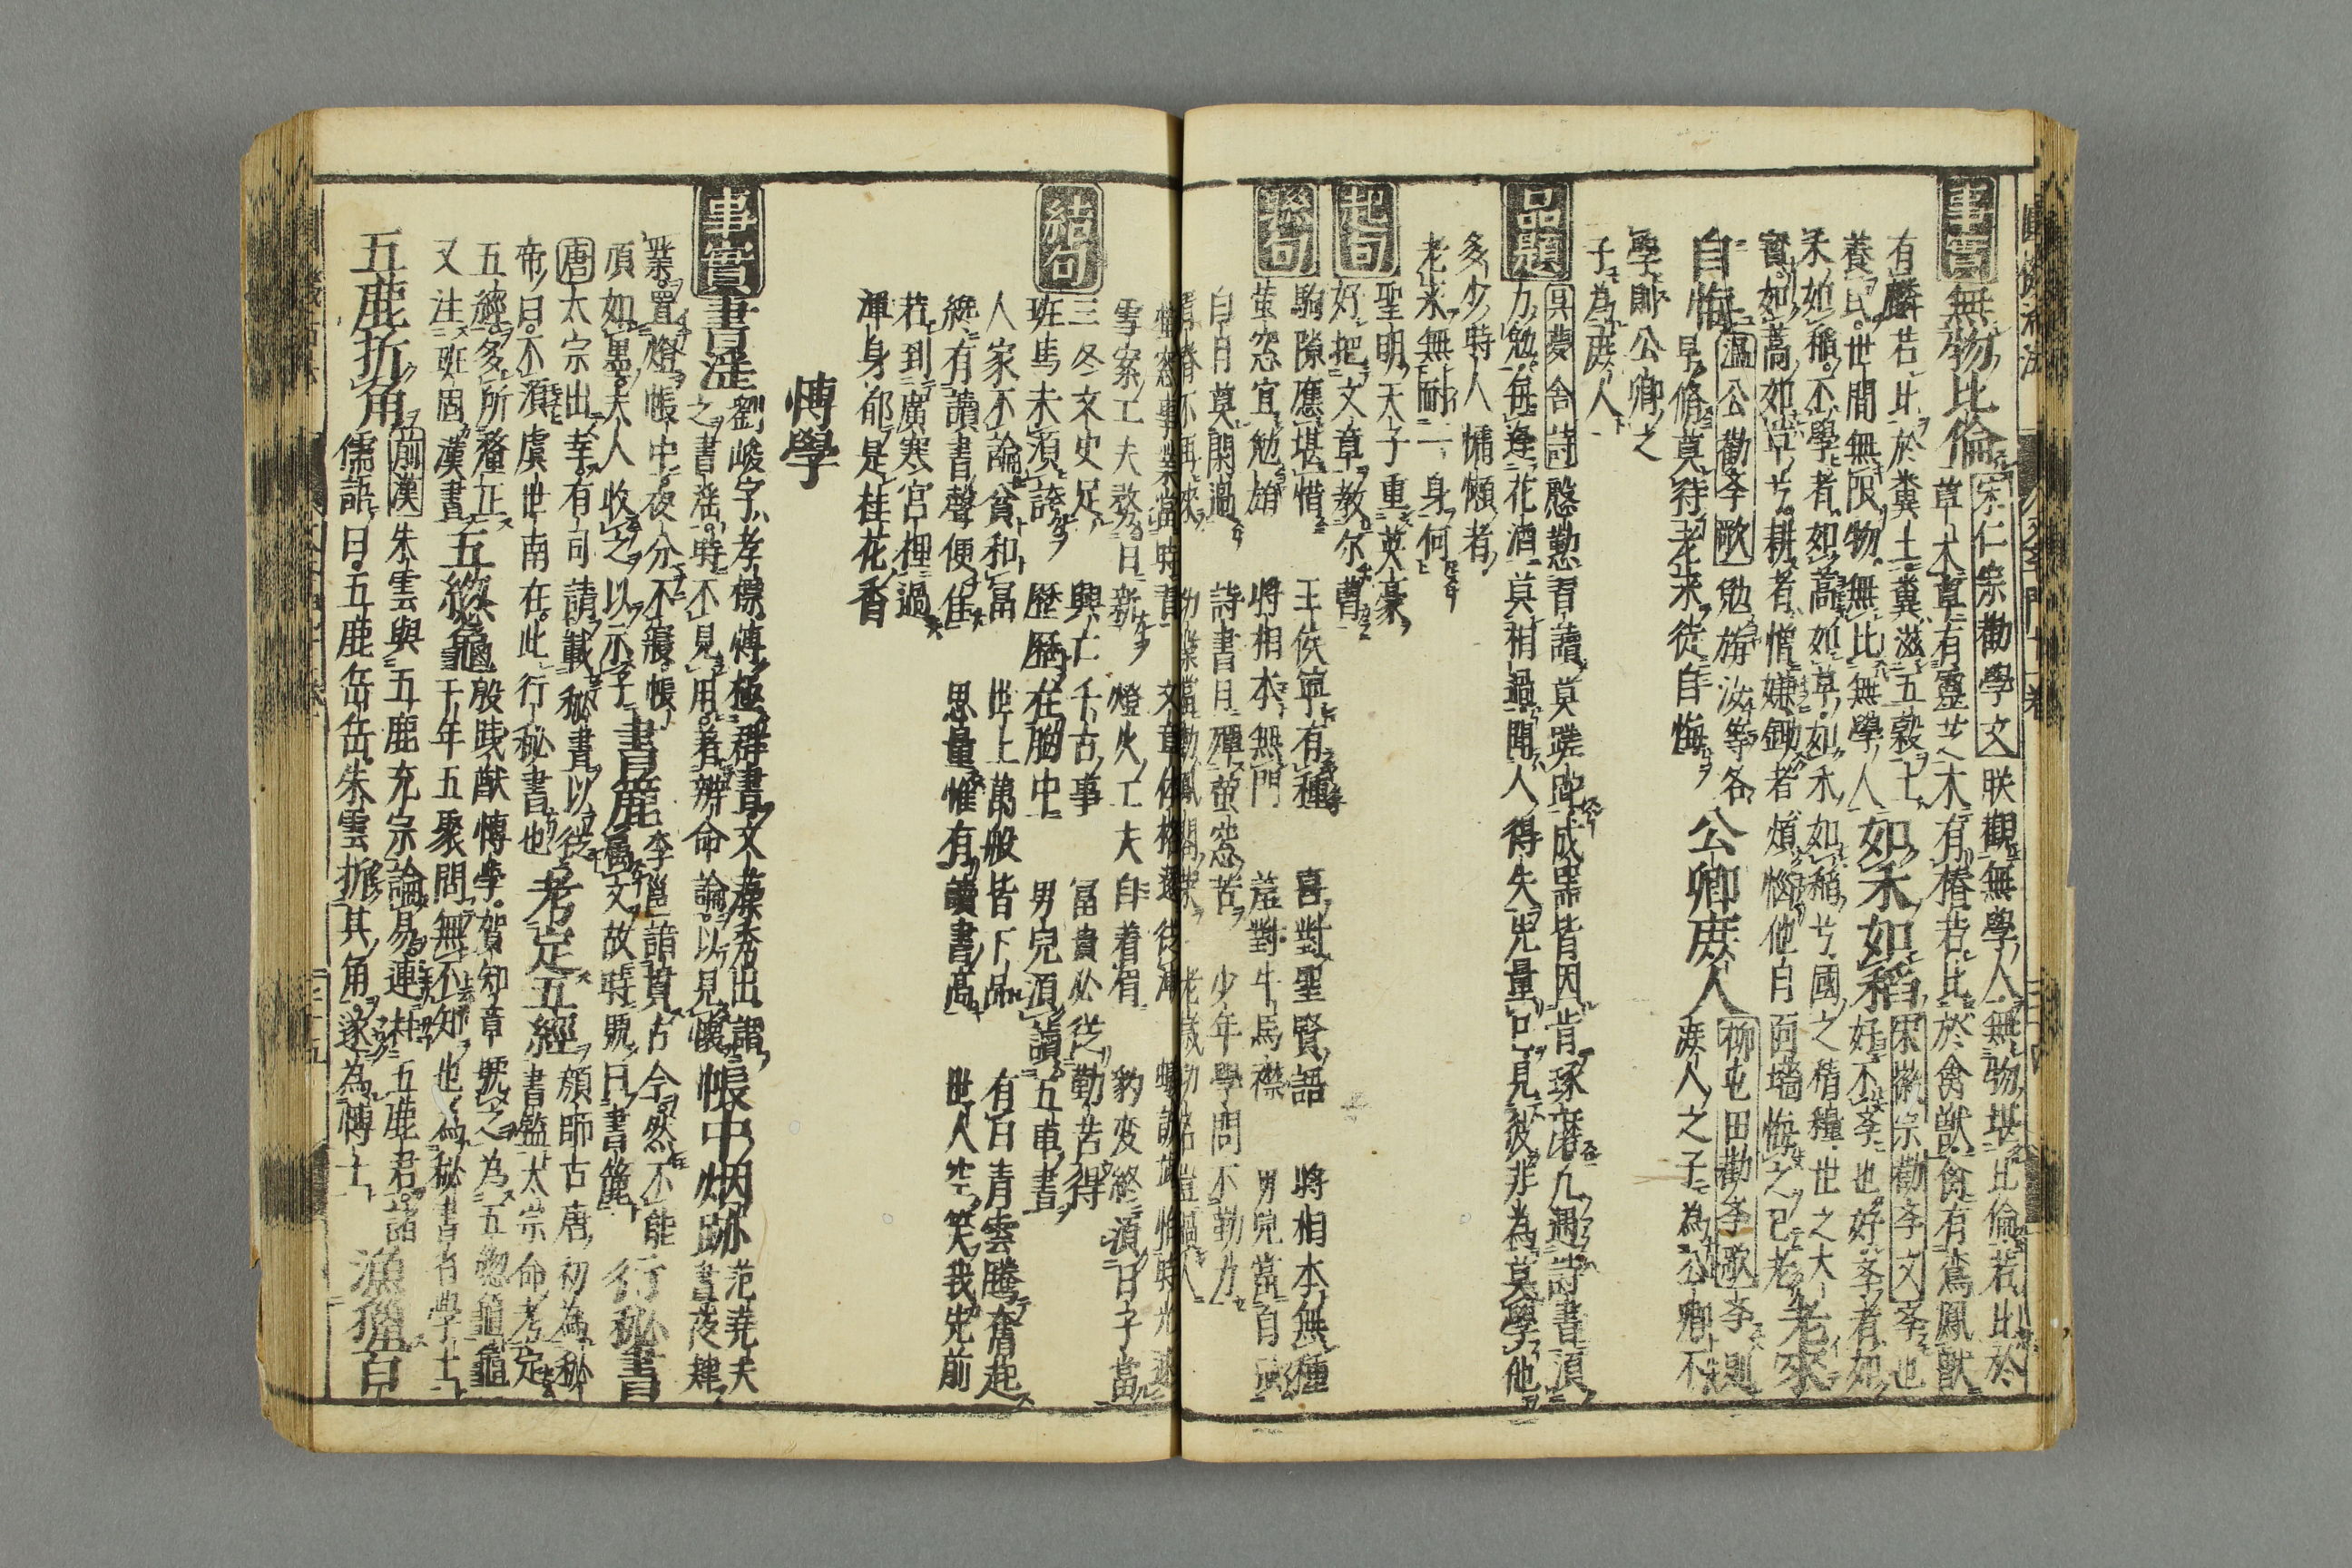 事實
無物比倫
宋仁宗勸學文
朕觀無學人無物堪比倫若比於
草木草有靈芝木有椿若比於禽獸禽有鸞鳳獸
有麟若比於糞土糞滋五穀土
養民世間無限物無比無學人
如禾如稻
宋徽宗勸孝文
孝也
好不孝也好孝者如
禾如稻不學者如蒿如草如禾如稻兮國之精糧世之大
寶如蒿如草兮耕者憎嫌鋤者煩惱他日面墻悔之已老
老來
自悔
早脩莫待老來徒自悔
温公勸孝歌
勉旃汝等各
公卿庶人
柳屯田勸孝歌
孝則
庶人之子為公卿不
學則公卿之
子為庶人
品題
吳夢舍詩
慇懃看讀莫蹉跎成器皆因肯琢磨凢遇詩書須
力勉每逢花酒莫相過聞人得失先量己見彼非為莫學他
多少時人慵懶者
老來無耐一身何
起句
聖明天子重英豪
好把文章教尔曹
聯句
駒隙應堪惜
王侯寧有種
喜對聖賢語
將相本無種
萤窓宜勉旃
將相本無門
羞對牛馬襟
男兒當自強
白日莫閑過
詩書且殫萤窓苦
少年學問不勤力
雪案工夫教日新
燈火工夫自着肩
豹变終須日子當
結句
三冬文史足
興亡千古事
冨貴必従勤苦得
班馬未須誇
歷歷在胸中
男兒須讀五車書
人家不論貧和冨
世上萬般皆下品
有日青雲騰奮起
縂有讀書聲便佳
思量惟有讀書高
世人空笑我先前
若到廣寒宮裡過
渾身都是桂花香
博學
事實
書淫
劉峻字孝標博極群書文藻秀出謂
之書淫時不見用着辨命論以見懷
帳中烟跡
范堯夫
書夜肄
業置燈帳中夜分不寢帳
頂如墨夫人收之以示子
書簏
李邕誥貫古今然不能
属文故時號曰書簏
行秘書
唐
太宗出幸有司請載秘書以從
帝曰不須虞世南在此行秘書也
考定五經
顏師古唐初為秘
書監太宗命考定
五經多所釐正
五緫龜
殷踐猷博學賀知章號之為五緫龜龜
千年五聚問無不知也為秘書省學士
又注班固漢書
五鹿折角
前漢
朱雲與五鹿充宗論易連柱五鹿君諸
儒語曰五鹿岳岳朱雲折其角遂為博士
漁獵百